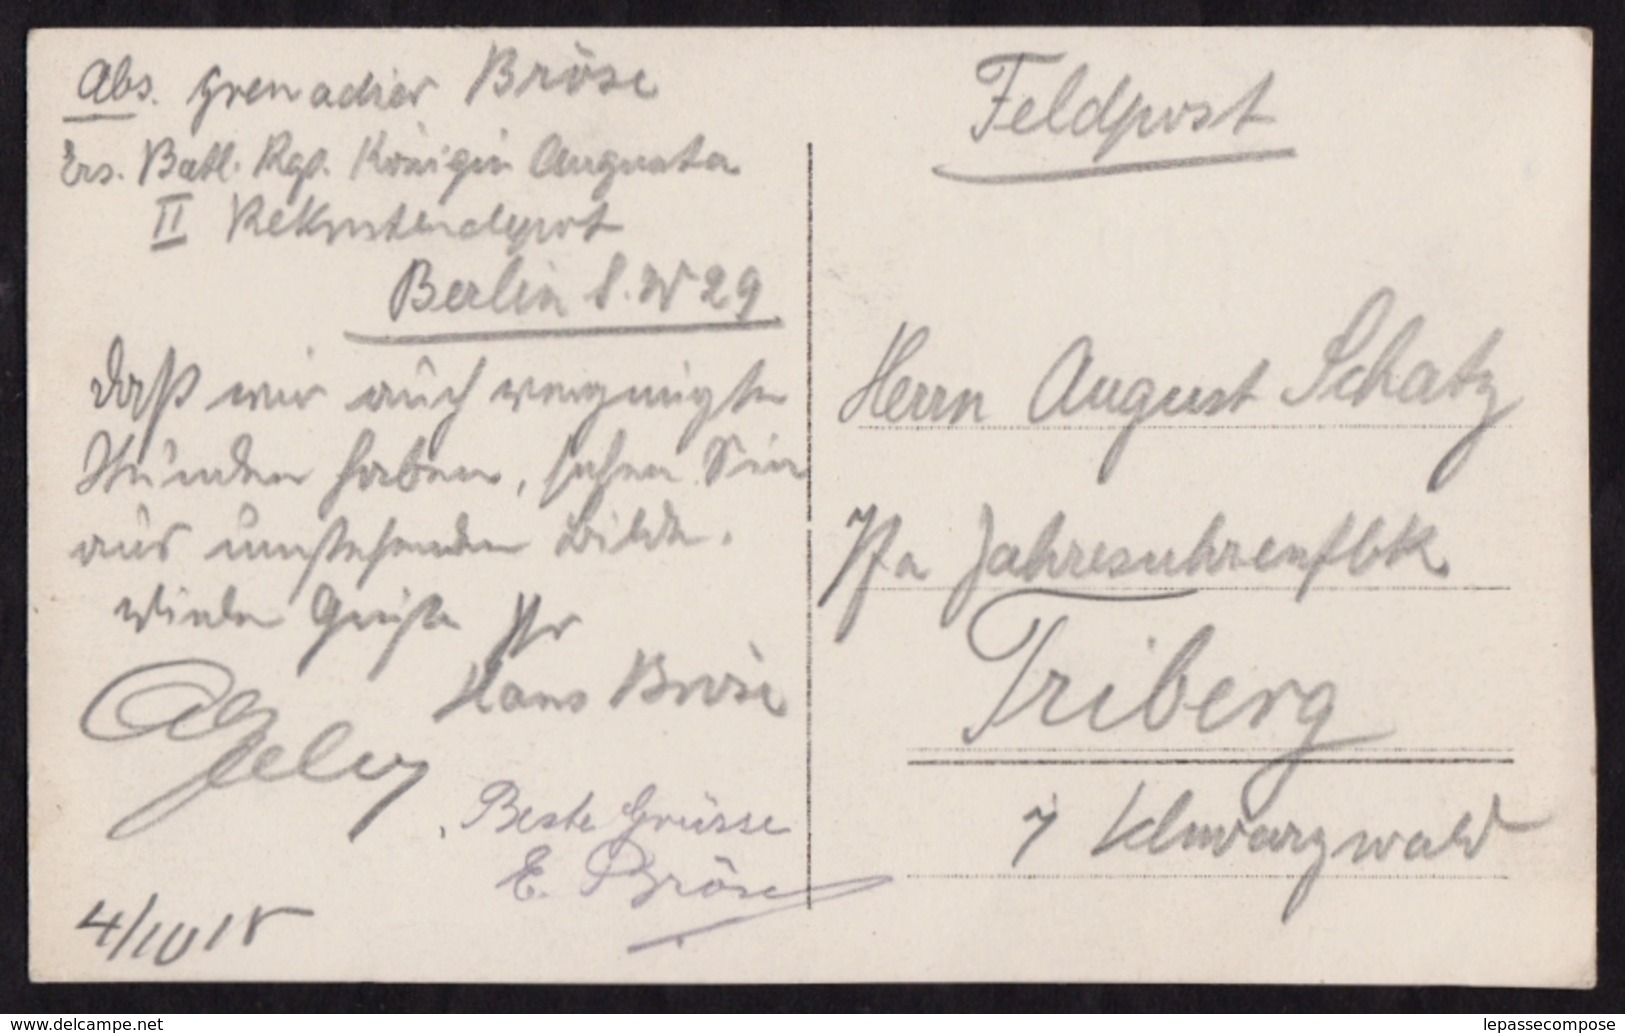 Abs. Grenadier Bröse
Ers. Batl. Rgt. Königin Augusta
II Rekrutendepot
Berlin S.W 29
Daß wir auch vergnügte
Stunden haben, sehen Sie
aus umstehendem Bilde.
Viele Grüße Ihr
Hans Bröse
Beste Grüsse
E. Bröse
4/10 15
Feldpost
Herrn August Schatz
Jahresuhrenfbk
Triberg
Schwarzwald
lepassecompose